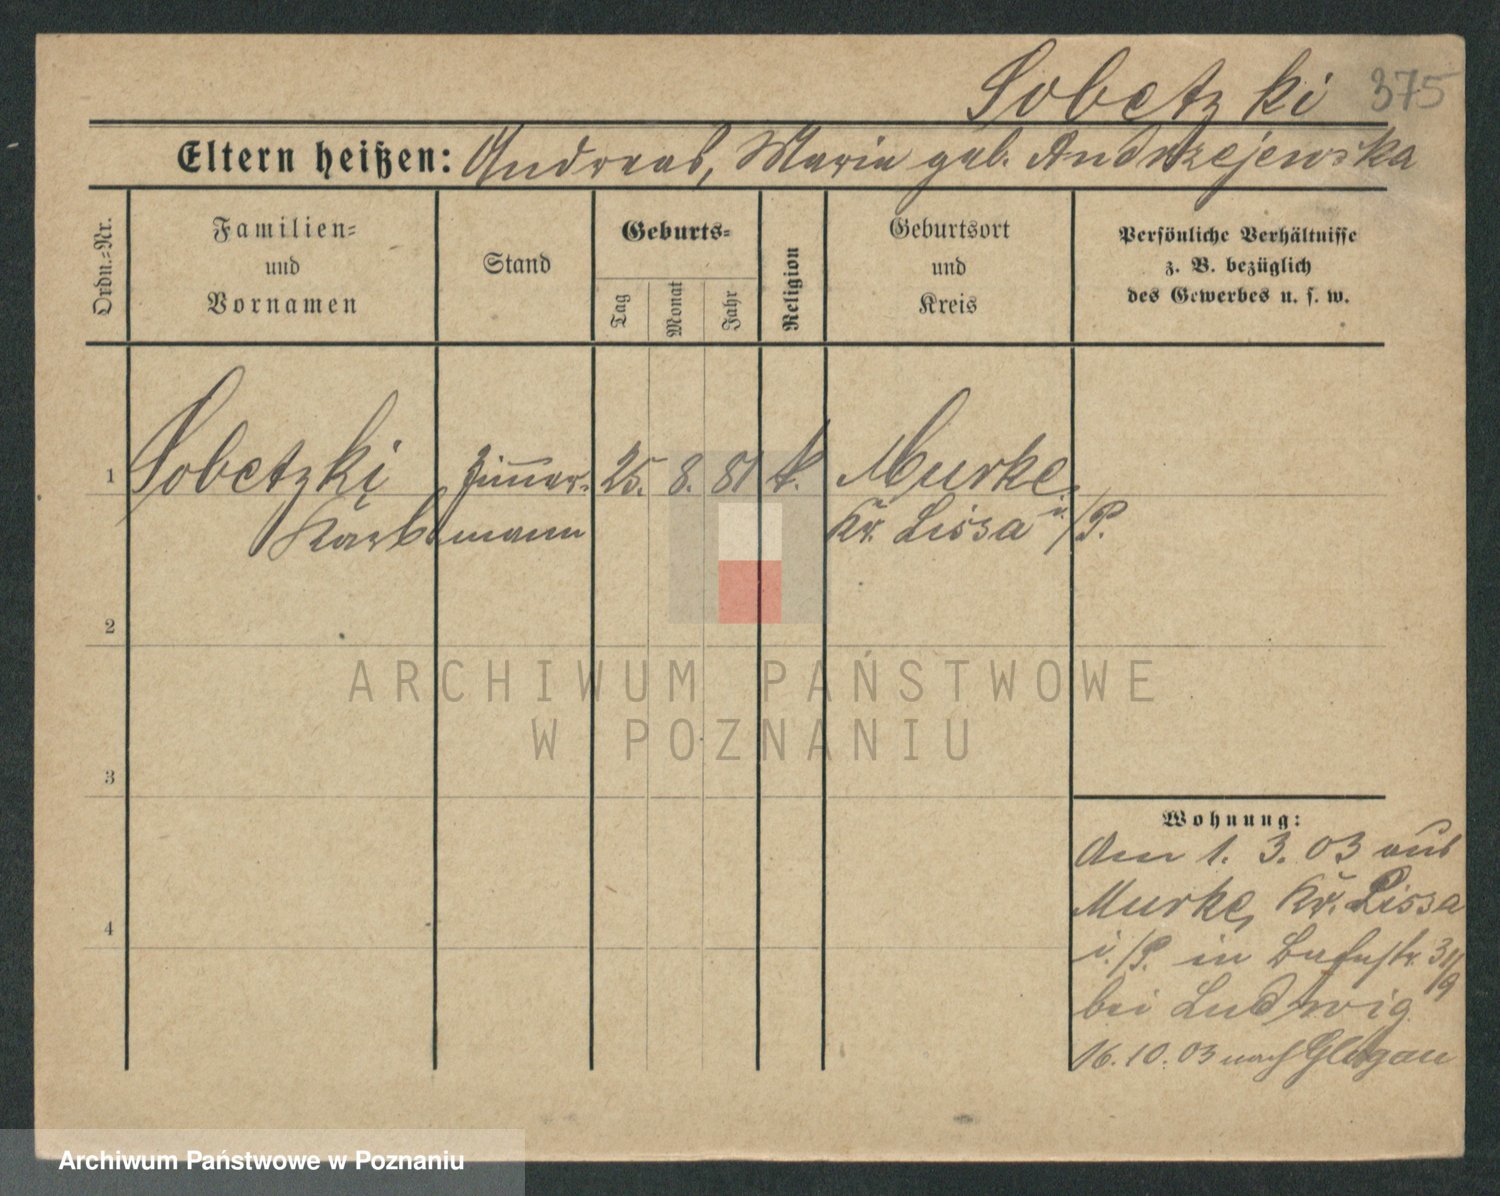 Sobetzki 375
Eltern heißen: Andreas, Maria geb. Andrzejewska
Ordn.-Nr.
Familien-
und
Vornamen
Stand
Geburts-
Tag
Monat
Jahr
Religion
Geburtsort
und
Kreis
Persönliche Verhältnisse
z. B. bezüglich
des Gewerbes u. s. w.
1 Sobetzki Zimmer- 25. 8. 81 k. Murke,
mann Kr. Lissa i./P.
2
3
4
Wohnung:
Am 1. 3. 03 aus
Murke, Kr. Lissa
i./P. in Bahnstr. 31/9
bei Ludwig
16. 10. 03 nach Glogau
ARCHIWUM PAŃSTWOWE
W POZNANIU
Archiwum Państwowe w Poznaniu